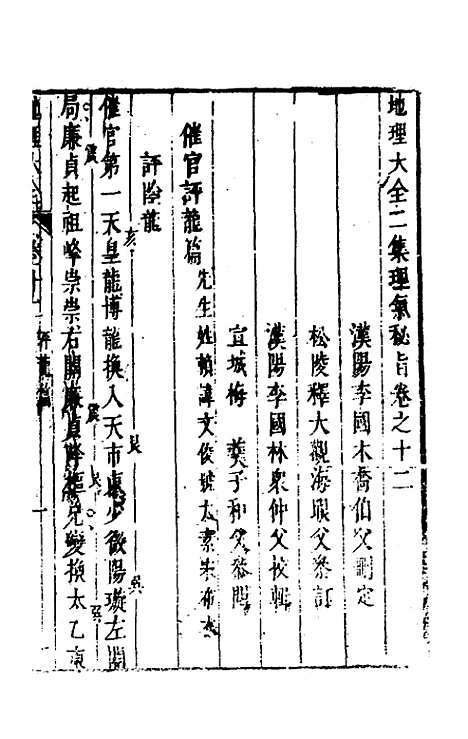 地理大全二集理氣秘旨卷之十二
漢陽李國木喬伯父刪定
松陵釋大觀海眼父叅訂
漢陽李國林衆仲父校輯
宣城梅 羹子和父叅閱
催官評龍篇 先生姓賴諱文俊號太素朱布衣
評陰龍
亥 艮 巽
催官第一天皇龍博龍換入天市東少微陽璇左關
震 震 艮 巽
局廉貞起祖峰崇崇右關廉貞降兌變換太乙
評龍篇 一